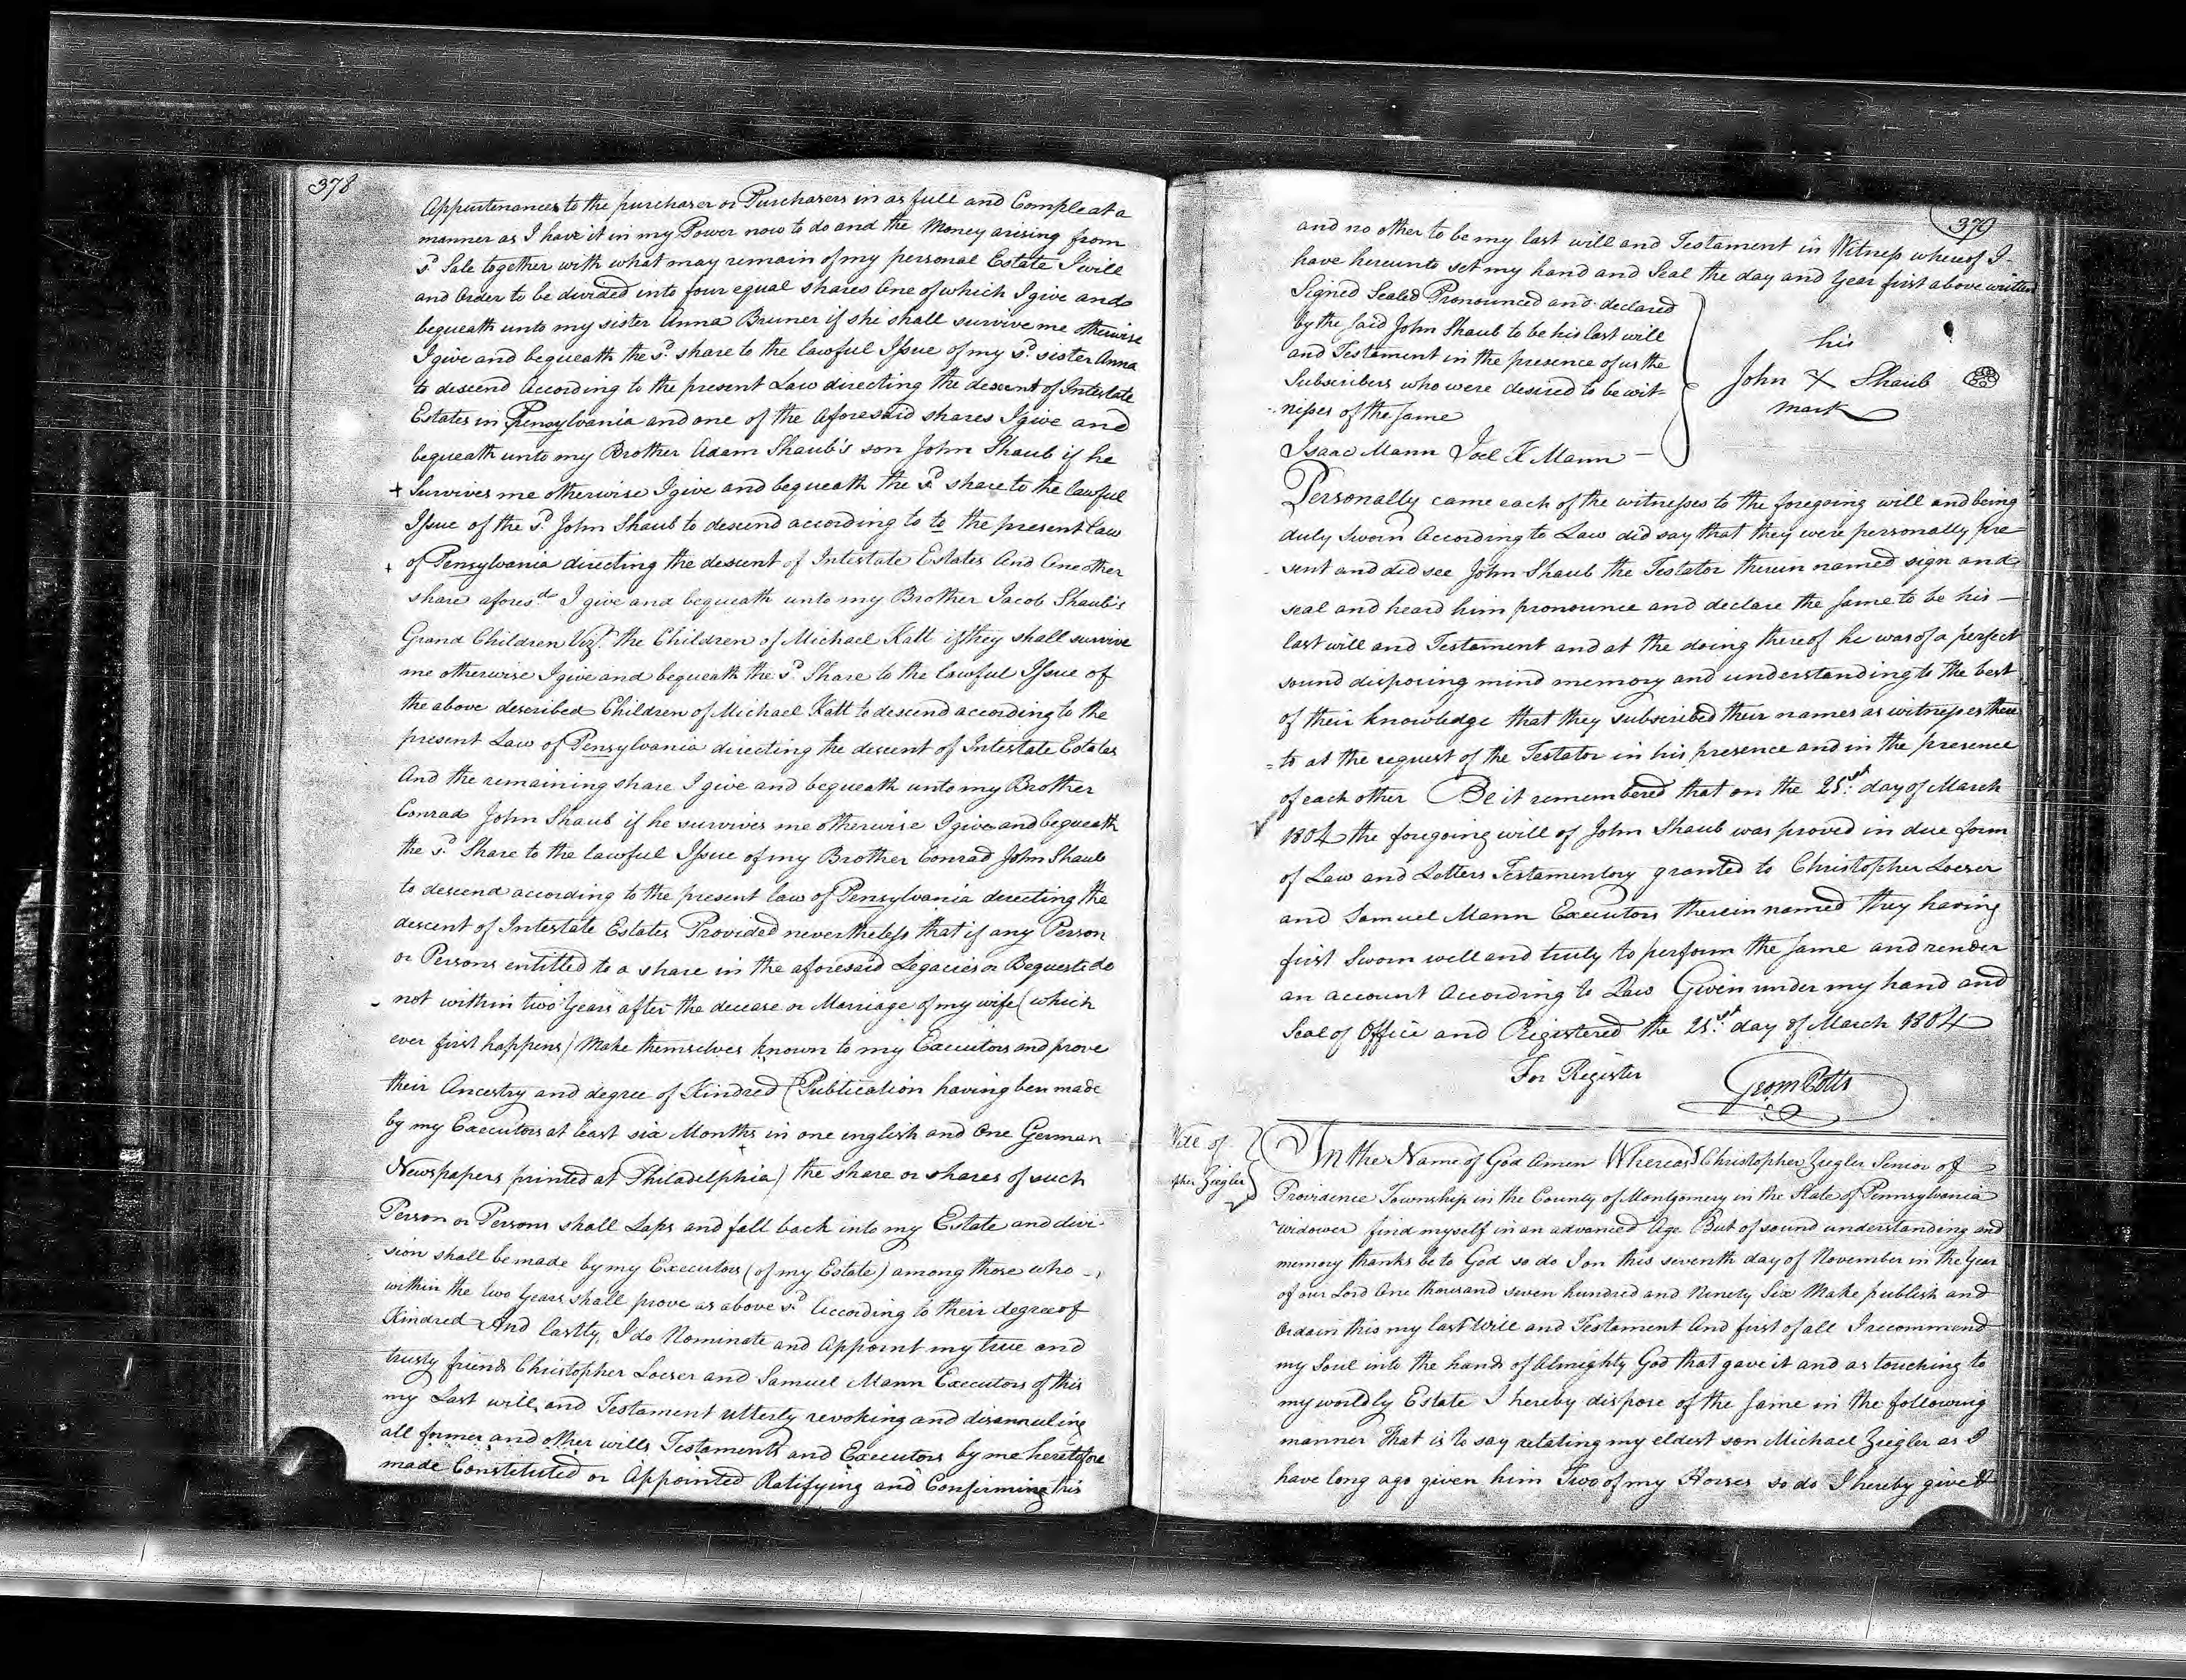 378
Appurtenances to the purchaser or Purchasers in as full and Compleat a
manner as I have it in my Power now to do and the Money arising from
sd. Sale together with what may remain of my personal Estate I will
and Order to be divided into four equal shares One of which I give and
bequeath unto my sister Anna Bruner if she shall survive me otherwise
I give and bequeath the sd. share to the lawful Issue of my sd. sister Anna
to descend According to the present Law directing the descent of Intestate
Estates in Pensylvania and one of the Aforesaid shares I give and
bequeath unto my Brother Adam Shaub's son John Shaub if he
+ Survives me otherwise I give and bequeath the sd. share to the lawful
Issue of the sd. John Shaub to descend according to to the present Law
+ of Pensylvania directing the descent of Intestate Estates And One other
share aforesd. I give and bequeath unto my Brother Jacob Shaub's
Grand Children Vizt. the Children of Michael Katt if they shall survive
me otherwise I give and bequeath the sd. Share to the lawful Issue of
the above described Children of Michael Katt to descend according to the
present Law of Pensylvania directing the descent of Intestate Estates
And the remaining share I give and bequeath unto my Brother
Conrad John Shaub if he survives me otherwise I give and bequeath
the sd. Share to the lawful Issue of my Brother Conrad John Shaub
to descend according to the present law of Pensylvania directing the
descent of Intestate Estates Provided nevertheless that if any Person
or Persons entitled to a share in the aforesaid Legacies or Bequests do
not within two Years after the decease or Marriage of my wife (which
ever first happens) Make themselves known to my Executors and prove
their Ancestry and degree of Kindred (Publication having ben made
by my Executors at least six Months in one inglish and One German
Newspapers printed at Philadelphia) the share or shares of such
Person or Persons shall Laps and fall back into my Estate and divi-
sion shall be made by my Executors (of my Estate) among those who
within the two Years shall prove as above sd. According to their degree of
Kindred And lastly, I do Nominate and Appoint my true and
trusty friends Christopher Loeser and Samuel Mann Executors of this
my Last will, and Testament utterly revoking and disannuling
all former and other wills Testaments and Executors by me heretofore
made Constituted or Appointed Ratifying and Confirming this
379
and no other to be my last will and Testament in Witness whereof I
have hereunto set my hand and Seal the day and Year first above written
Signed Sealed Pronounced and declared
by the said John Shaub to be his last will
and Testament in the presence of us the
Subscribers who were desired to be wit=
nesses of the same
Isaac Mann Joel K Mann
his
John X Shaub
mark
Personally came each of the witnesses to the foregoing will and being
duly Sworn According to Law did say that they were personally pre
sent and did see John Shaub the Testator therein named sign and
seal and heard him pronounce and declare the same to be his
last will and Testament and at the doing thereof he was of a perfect
sound disposing mind memory and understanding to the best
of their knowledge that they subscribed their names as witnesses there
=to at the request of the Testator in his presence and in the presence
of each other Be it remembered that on the 21st. day of March
1804 the foregoing will of John Shaub was proved in due form
of Law and Letters Testamentory granted to Christopher Loeser
and Samuel Mann Executors therein named they having
first Sworn well and truly to perform the same and render
an account According to Law Given under my hand and
Seal of Office and Registered the 21st. day of March 1804
For Register
Geo m Potts
Will of
pher Ziegler
In the Name of God Amen Whereas I Christopher Ziegler Senior of
Providence Township in the County of Montgomery in the State of Pennsylvania
widower find myself in an advanced Age But of sound understanding and
memory thanks be to God so do I on this seventh day of November in the Year
of our Lord One thousand seven hundred and Ninety Six Make publish and
Ordain this my last Will and Testament And first of all I recommend
my Soul into the hands of Almighty God that gave it and as touching to
my worldly Estate I hereby dispose of the same in the following
manner That is to say relating my eldest son Michael Ziegler as I
have long ago given him Two of my Horses so do I hereby give &